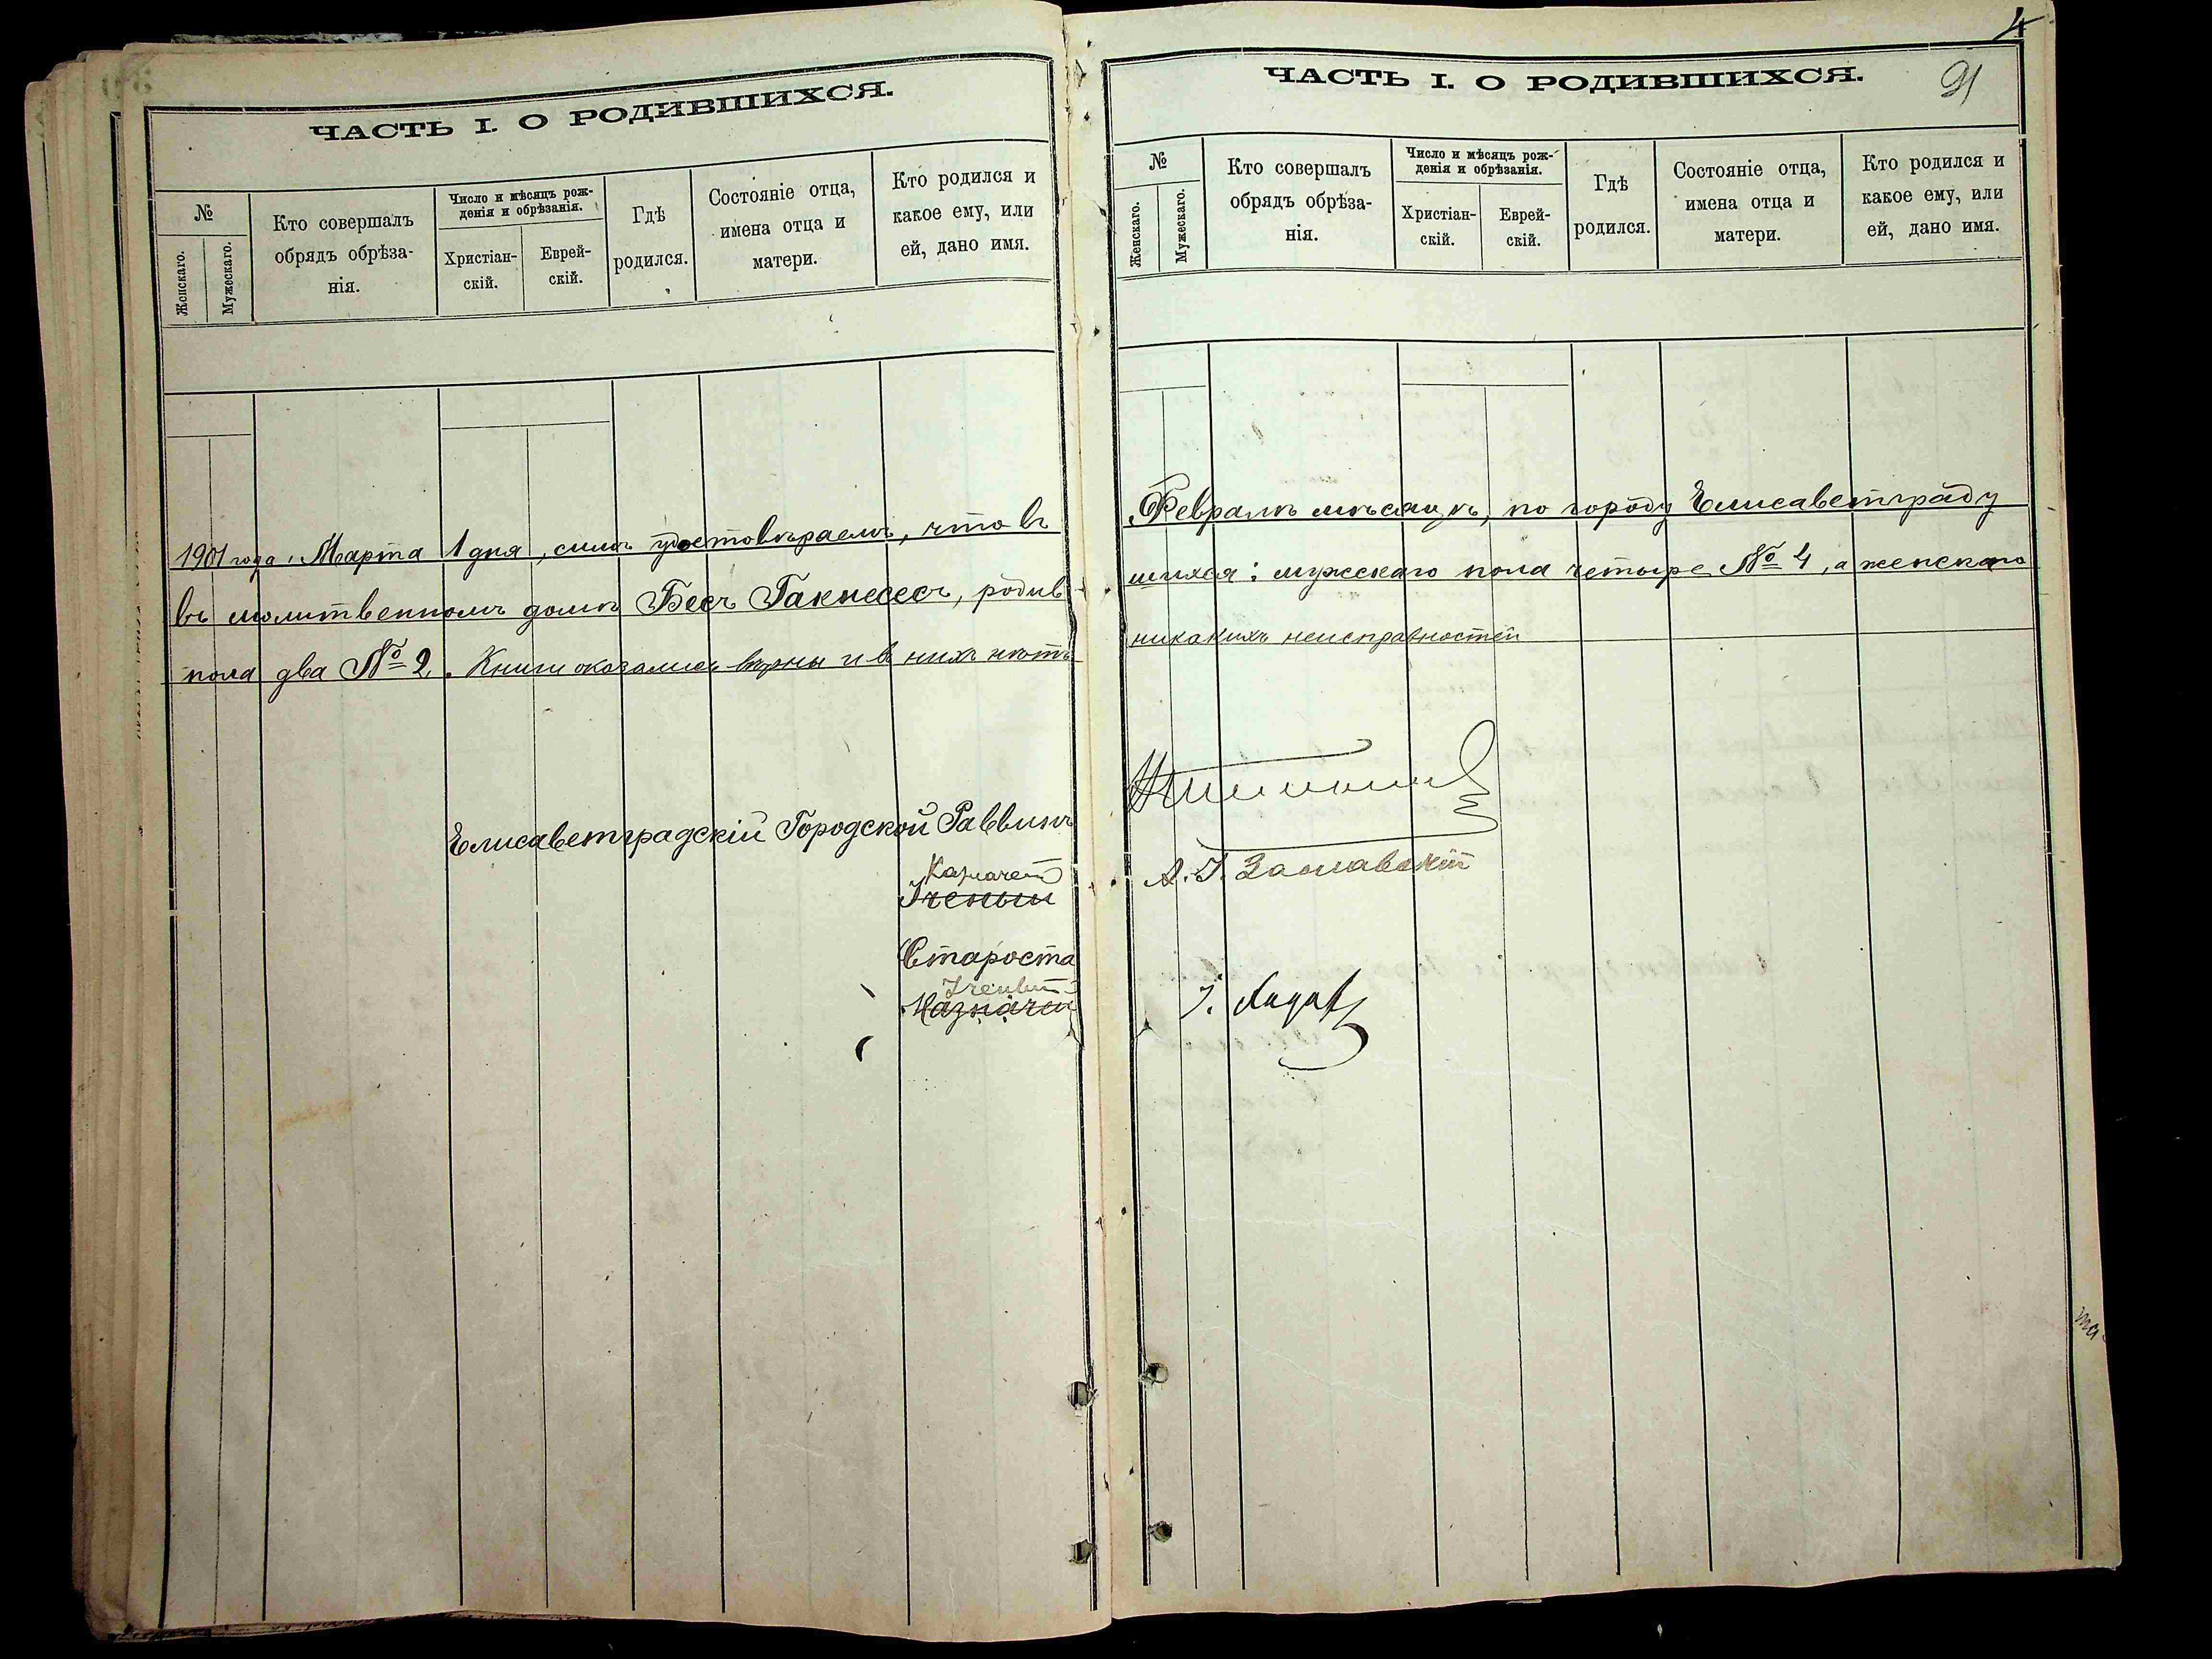 ЧАСТЬ I. О РОДИВШИХСЯ.
№
Женскаго.
Мужескаго.
Кто совершалъ
обрядъ обрѣза-
нія.
Число и мѣсяцъ рож-
денія и обрѣзанія.
Христіан-
скій.
Еврей-
скій.
Гдѣ
родился.
Состояніе отца,
имена отца и
матери.
Кто родился и
какое ему, или
ей, дано имя.
1901 года Марта 1 дня, симъ удостовѣраемъ, что въ
въ молитвенномъ домѣ Бесъ Гакнесесъ, родив
пола два № 2. Книги оказались вѣрны и въ нихъ нѣтъ
Елисаветградскій Городской Раввинъ
Казначей
Ученый
Староста
Ученый
Казначей
4
ЧАСТЬ I. О РОДИВШИХСЯ.
91
№
Женскаго.
Мужескаго.
Кто совершалъ
обрядъ обрѣза-
нія.
Число и мѣсяцъ рож-
денія и обрѣзанія.
Христіан-
скій.
Еврей-
скій.
Гдѣ
родился.
Состояніе отца,
имена отца и
матери.
Кто родился и
какое ему, или
ей, дано имя.
Февралѣ мѣсяцѣ, по городу Елисаветграду
шихся: мужескаго пола четыре № 4, а женскаго
никакихъ неисправностей
А. I. Заславскій